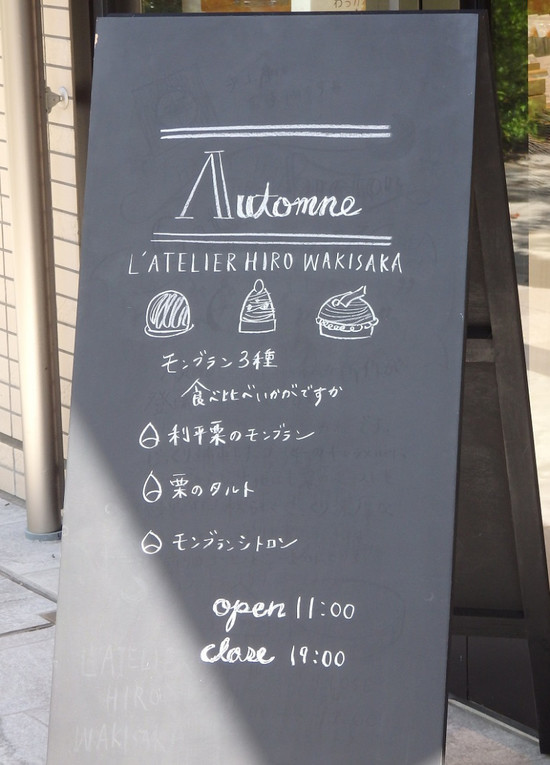 Automne
L'ATELIER HIRO WAKISAKA
モンブラン3種
食べ比べいかがですか
利平栗のモンブラン
栗のタルト
モンブランシトロン
open 11:00
close 19:00
L'ATELIER
HIRO
WAKISAKA